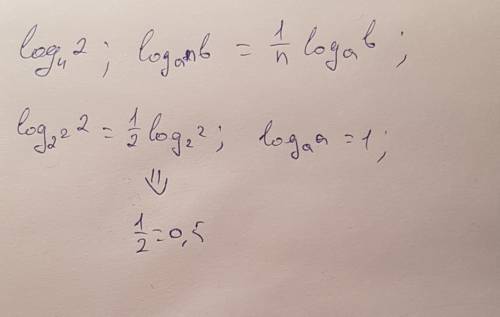 log₄ 2 ; logₐⁿ b = 1/n logₐ b ;
log₂² 2 = 1/2 log₂ 2 ; logₐ a = 1 ;
⇓
1/2 = 0,5